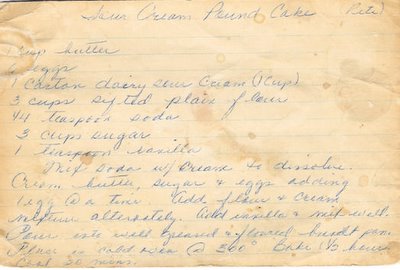 Sour Cream Pound Cake
1 cup butter
eggs
1 Carton dairy sour Cream (1 Cup)
3 cups sifted plain flour
1/4 teaspoon soda
3 cups sugar
1 teaspoon vanilla
Mix soda w/ Cream to dissolve.
Cream butter, sugar & eggs adding
1 egg @ a time. Add flour & Cream
mixture alternately. Add vanilla & mix well.
Pour into well greased & floured bundt pan.
Place in cold oven @ 300° Bake 1 1/2 hours
Cool 30 mins.